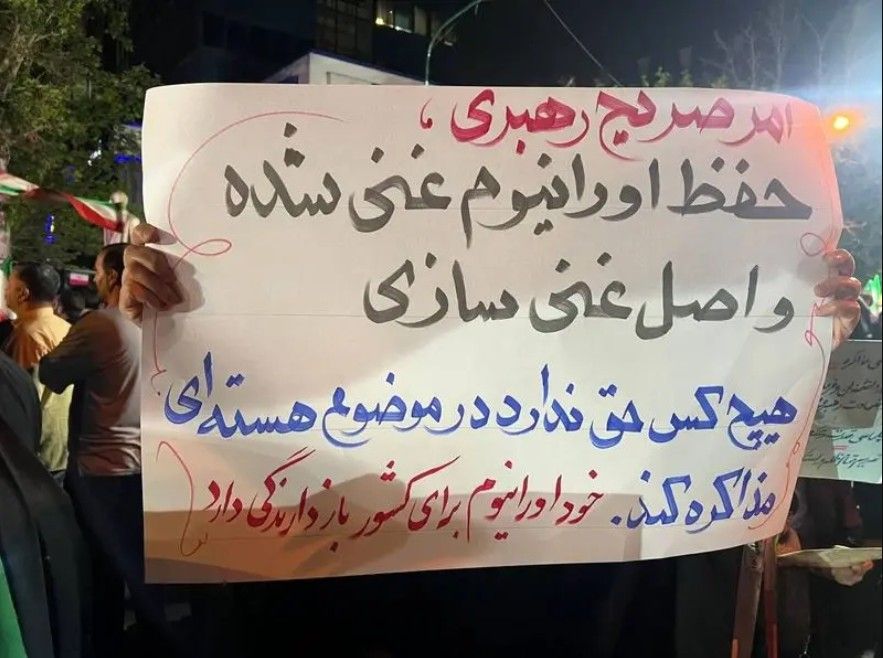 امر صریح رهبری،
حفظ اورانیوم غنی شده
و اصل غنی سازی
هیچ کس حق ندارد در موضوع هسته ای
مذاکره کند. خود اورانیوم برای کشور بازدارندگی دارد